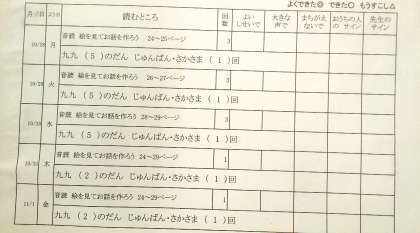 よくできた◎ できた○ もうすこし△
月/日 よう日 読むところ 回数 よいしせいで 大きな声で まちがえないで おうちの人のサイン 先生のサイン
10/28 月 音読 絵を見てお話を作ろう 24～25ページ 3
九九 (5)のだん じゅんばん・さかさま (1)回
10/29 火 音読 絵を見てお話を作ろう 26～27ページ 3
九九 (5)のだん じゅんばん・さかさま (1)回
10/30 水 音読 絵を見てお話を作ろう 28～29ページ 3
九九 (5)のだん じゅんばん・さかさま (1)回
10/31 木 音読 絵を見てお話を作ろう 24～29ページ 1
九九 (2)のだん じゅんばん・さかさま (1)回
11/1 金 音読 絵を見てお話を作ろう 24～29ページ 1
九九 (2)のだん じゅんばん・さかさま (1)回